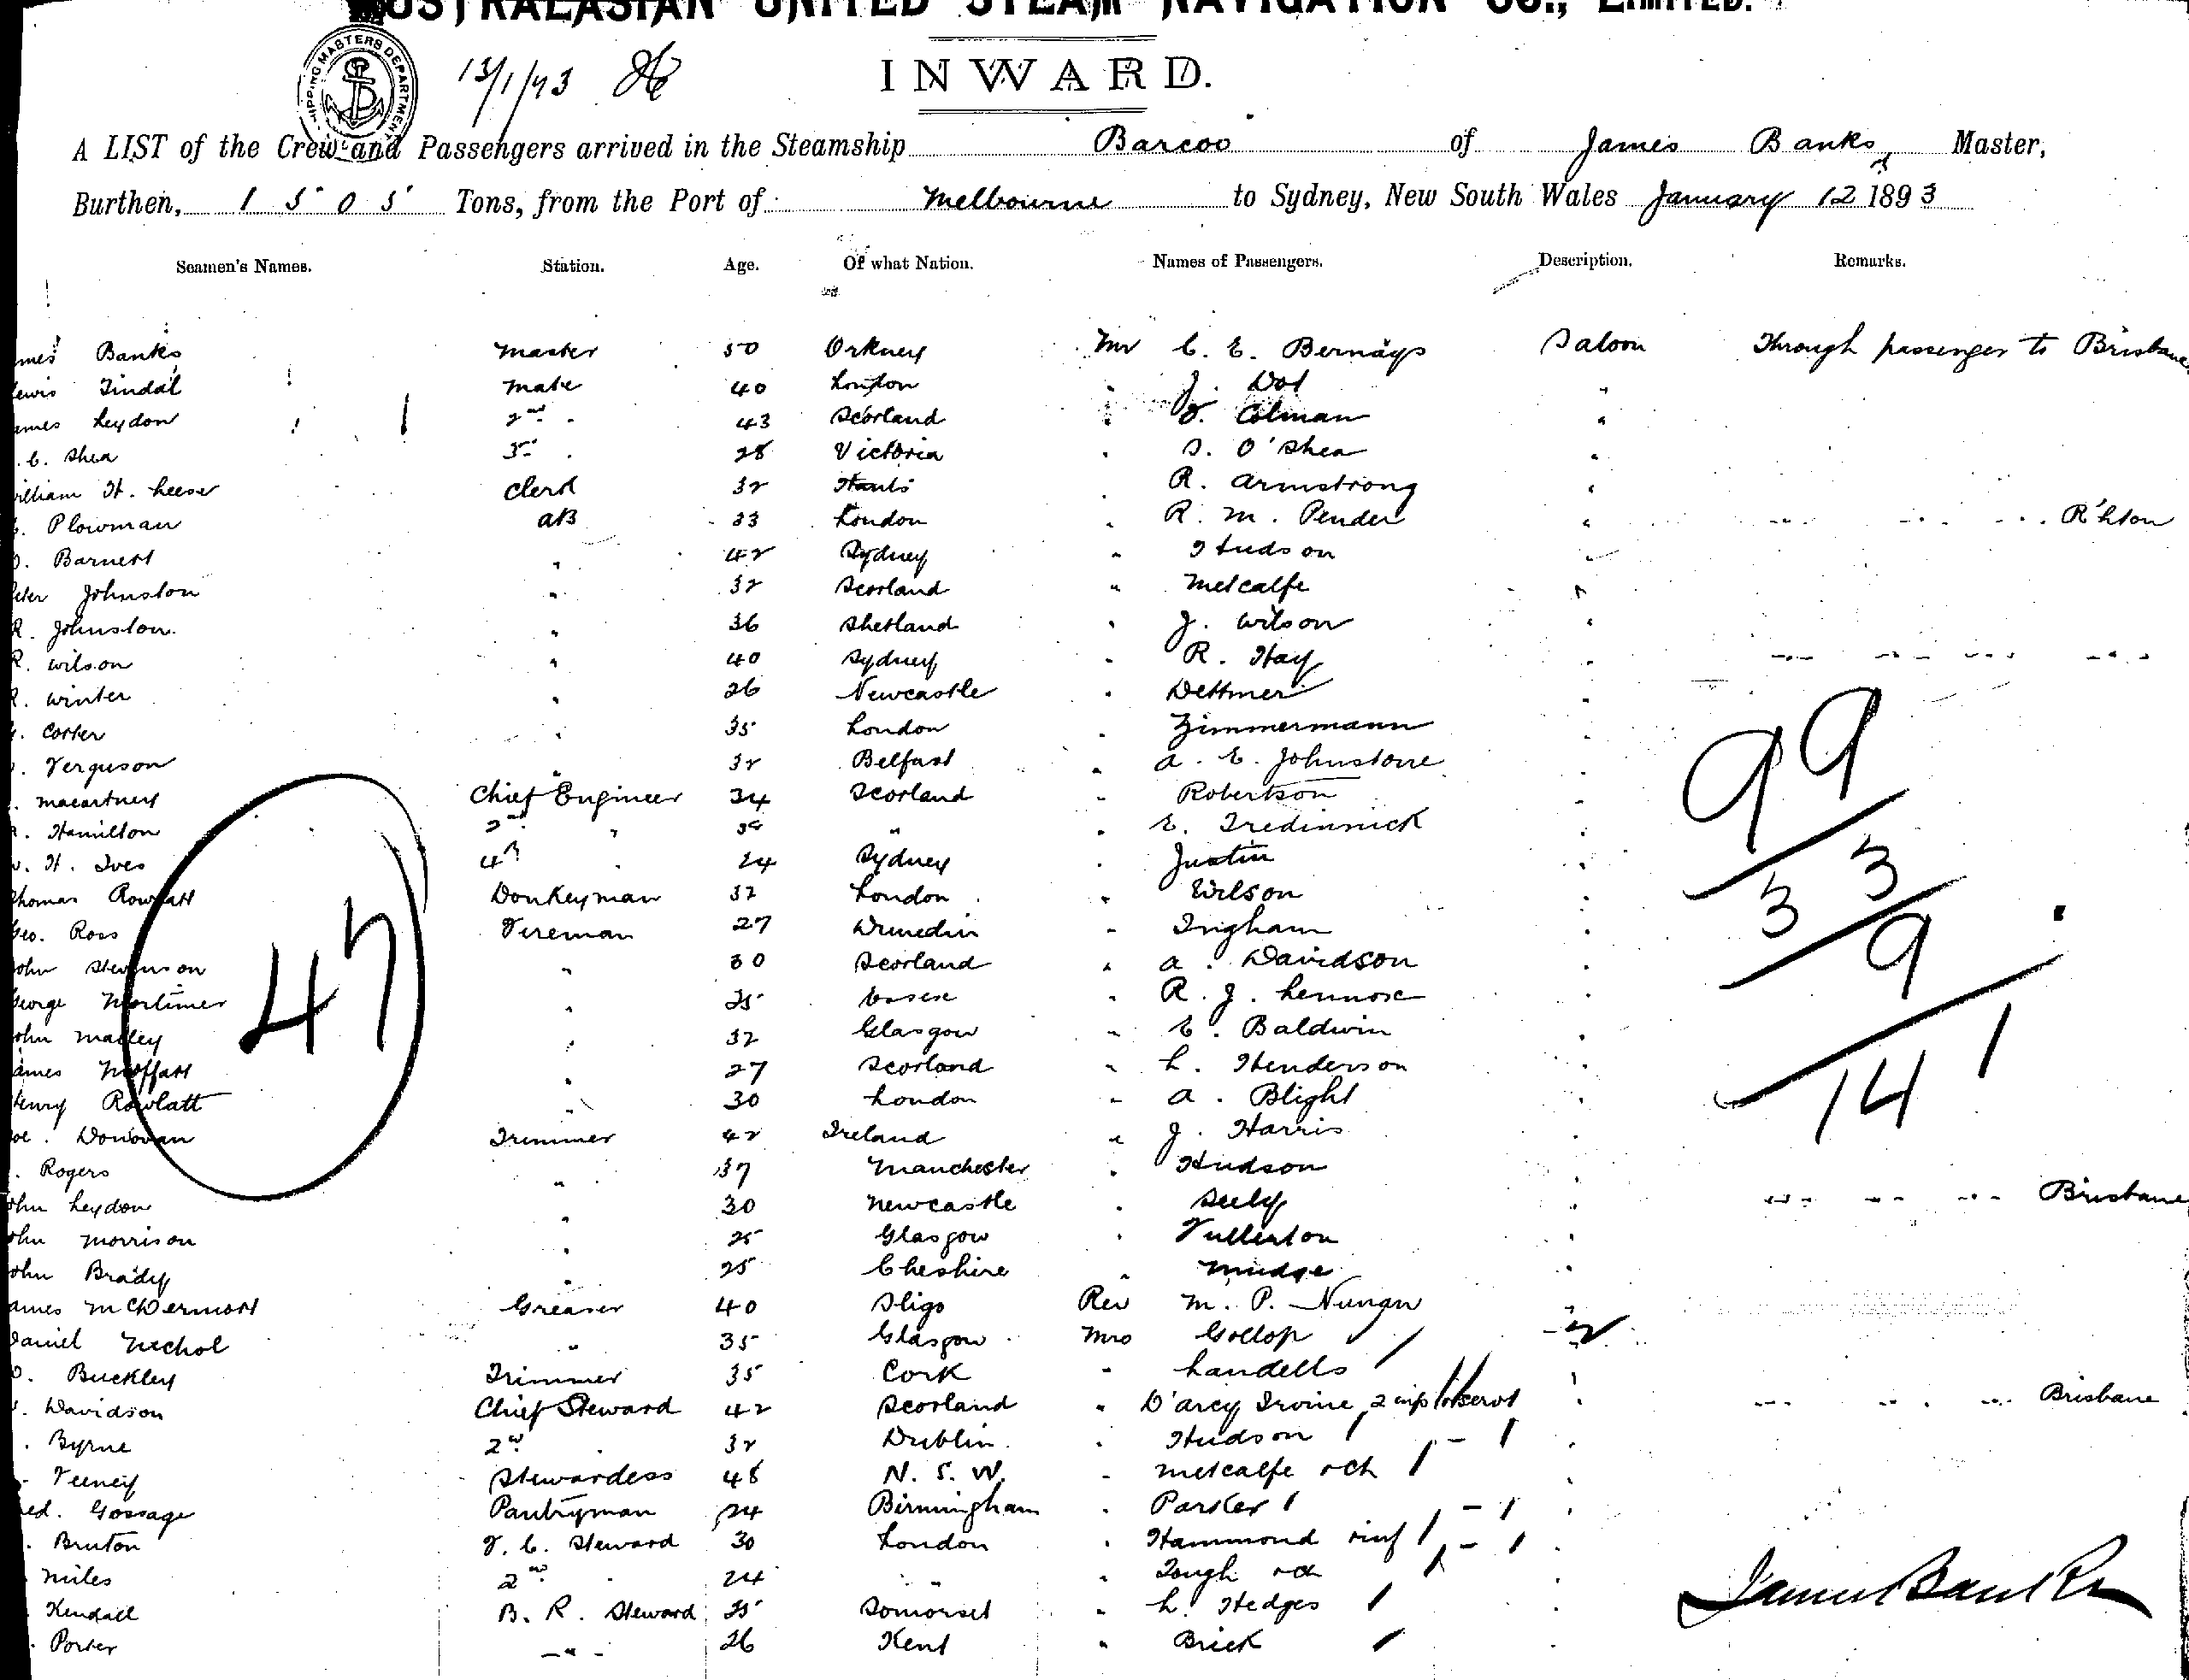 AUSTRALASIAN UNITED STEAM NAVIGATION CO., LIMITED.
SHIPPING MASTERS DEPARTMENT
13/1/93
INWARD.
A LIST of the Crew and Passengers arrived in the Steamship Barcoo of James Banks, Master,
Burthen, 1505 Tons, from the Port of Melbourne to Sydney, New South Wales January 12 1893
Seamen's Names. Station. Age. Of what Nation. Names of Passengers. Description. Remarks.
mes Banks Master 50 Orkney Mr C. E. Bernays Saloon Through passenger to Brisbane
ewis Tindal Mate 40 London " J. Dot "
ames Leydon 2nd " 43 Scotland " F. Colman "
. C. Shea 3rd " 28 Victoria " S. O'Shea "
illiam H. Leeser Clerk 32 Hants " R. Armstrong "
. Plowman AB 33 London " R. M. Pender " " " " R'hton
. Barnett " 42 Sydney " Hudson "
eter Johnston " 32 Scotland " Metcalfe "
R. Johnston " 36 Shetland " J. Wilson "
R. Wilson " 40 Sydney " R. Hay " " " " "
R. Winter " 26 Newcastle " Dettmer "
. Corter " 35 London " Zimmermann "
. Ferguson " 32 Belfast " A. E. Johnstone "
. Macartney Chief Engineer 34 Scotland " Robertson "
. Hamilton 2nd " " " E. Tredinnick "
. H. Ives 4th " 24 Sydney " Justin "
homas Rowlatt Donkeyman 32 London " Wilson "
eo. Ross Fireman 27 Dunedin " Ingham "
ohn Stevenson " 30 Scotland " A. Davidson "
eorge Mortimer " 25 Essex " R. J. Lennox "
ohn Malley " 32 Glasgow " E. Baldwin "
ames Moffatt " 27 Scotland " L. Henderson "
enry Rowlatt " 30 London " A. Blight "
oe. Donovan Trimmer 42 Ireland " J. Harris "
. Rogers " 37 Manchester " Hudson "
ohn Leydon " 30 Newcastle " Seely " " " " Brisbane
ohn Morrison " 25 Glasgow " Fullerton "
ohn Brady " 25 Cheshire " Mudge "
ames McDermott Greaser 40 Sligo Rev M. P. Nunan "
Daniel Nichol " 35 Glasgow Mrs Gollop "
. Buckley Trimmer 35 Cork " Landells "
. Davidson Chief Steward 42 Scotland " D'arcy Irvine, 2 inf servt " " " " Brisbane
. Byrne 2nd " 32 Dublin " Hudson 1 - 1 "
. Feeney Stewardess 48 N. S. W. " Metcalfe & ch 1 "
ed. Gossage Pantryman 24 Birmingham " Parker 1 - 1 "
. Bruton F. C. Steward 30 London " Hammond inf 1 - 1 "
. Miles 2nd " 24 " " Tough & ch 1 "
. Kendall B. R. Steward 25 Somerset " L. Hedges 1 "
. Porter " 26 Kent " Brick 1 "
47
99
33
9
141
James Banks